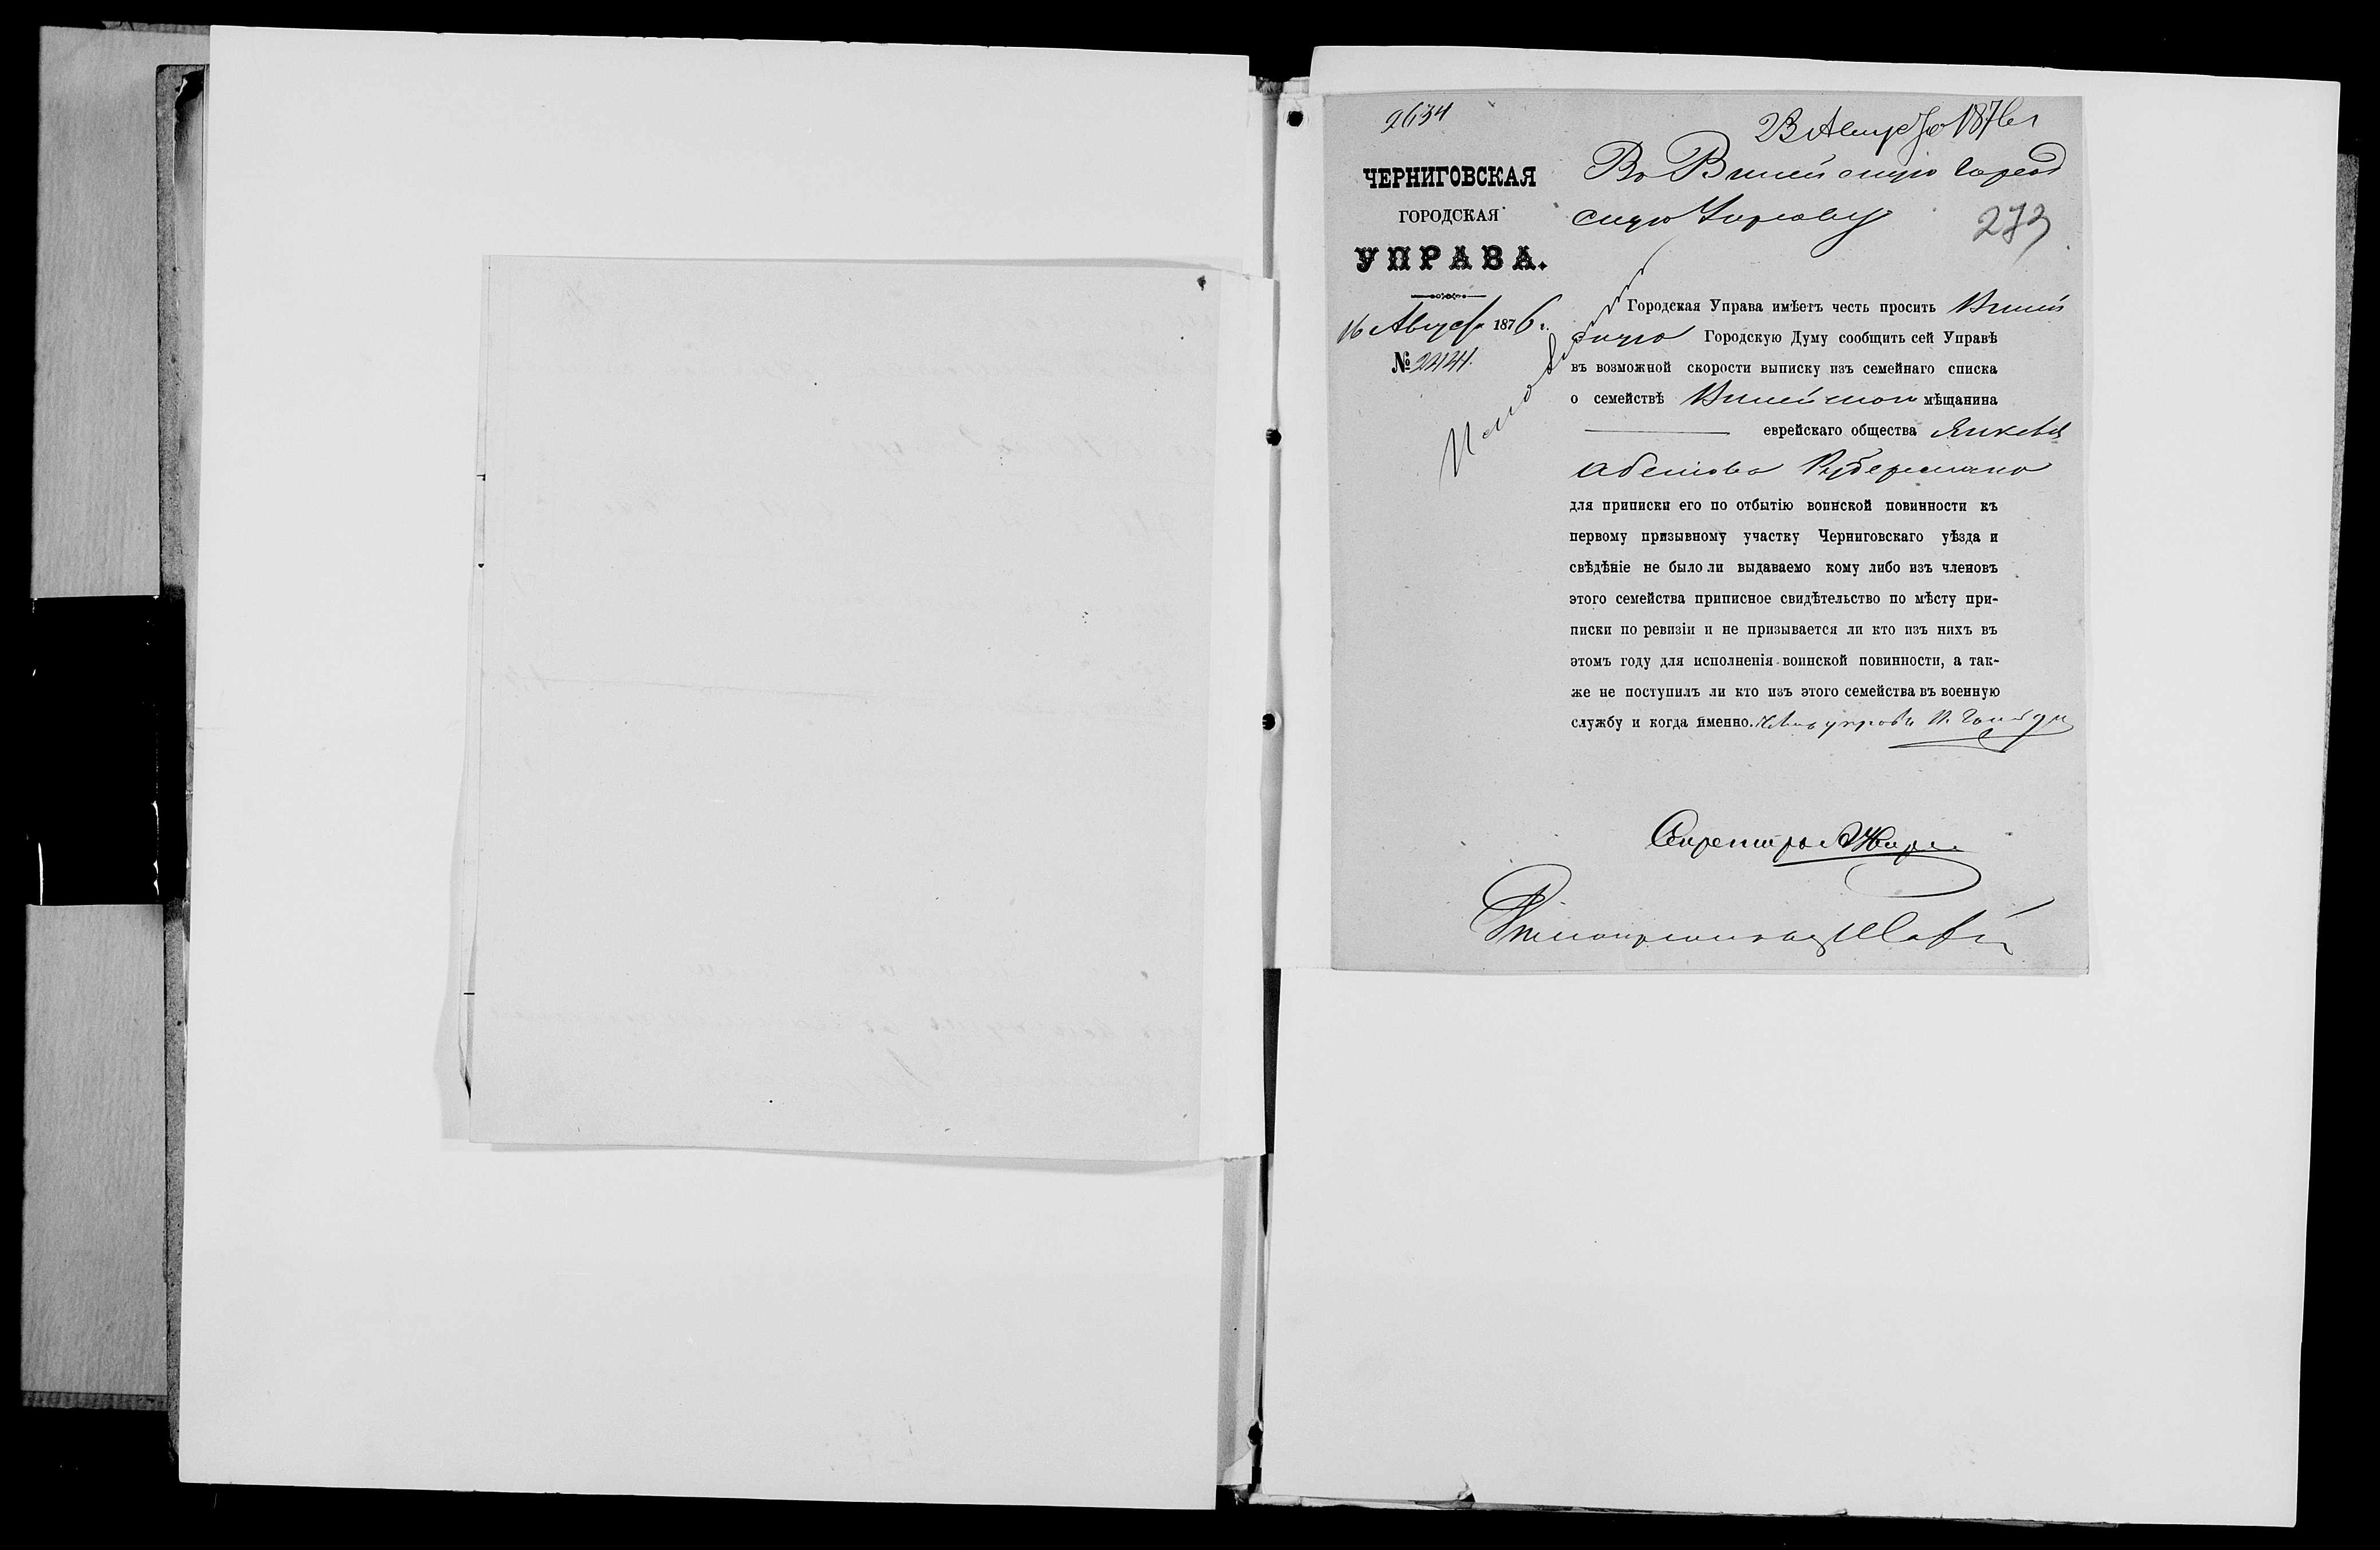 2634
23 Августа 1876 г
ЧЕРНИГОВСКАЯ
ГОРОДСКАЯ
УПРАВА.
16 Августа 1876 г.
№ 2444.
Въ Вилейскую Город
скую Управу
273
Городская Управа имѣетъ честь просить Вилей
скую Городскую Думу сообщить сей Управѣ
въ возможной скорости выписку изъ семейнаго списка
о семействѣ мѣщанина
еврейскаго общества Янкеля
для приписки его по отбытію воинской повинности къ
первому призывному участку Черниговскаго уѣзда и
свѣдѣніе не было ли выдаваемо кому либо изъ членовъ
этого семейства приписное свидѣтельство по мѣсту при-
писки по ревизіи и не призывается ли кто изъ нихъ въ
этомъ году для исполненія воинской повинности, а так-
же не поступилъ ли кто изъ этого семейства въ военную
службу и когда именно. Членъ управы
Секретарь